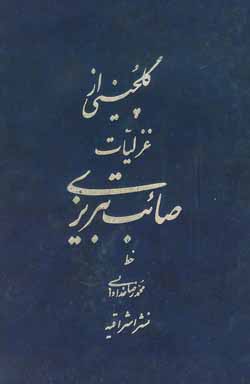 گلچینی از
غزلیات
صائب تبریزی
خط
محمدرضا خدادادی
نشر اشراقیه